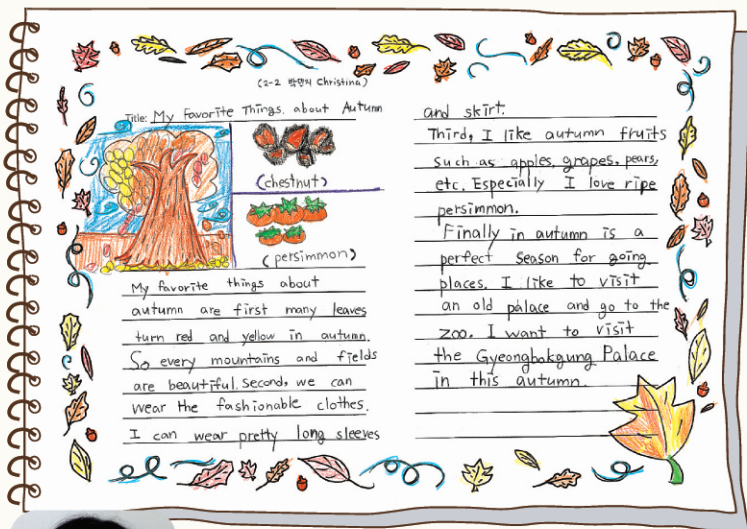 (2-2 박민희 Christina)
Title: My favorite Things. about Autumn
(chestnut)
(persimmon)
My favorite things about
autumn are first many leaves
turn red and yellow in autumn.
So every mountains and fields
are beautiful. Second, we can
wear the fashionable clothes.
I can wear pretty long sleeves
and skirt.
Third, I like autumn fruits
such as apples, grapes, pears,
etc. Especially I love ripe
persimmon.
Finally in autumn is a
perfect season for going
places. I like to visit
an old palace and go to the
zoo. I want to visit
the Gyeongbokgung Palace
in this autumn.